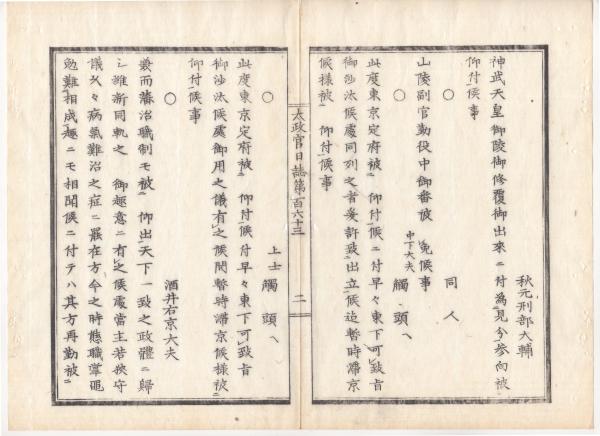 秋元刑部大輔
神武天皇御陵御修覆御出來ニ付為見分参向被
仰付候事
○
同人
山陵副官勤役中御番被 免候事
○
中下大夫 觸頭ヘ
此度東京定府被ニ 仰付一候ニ付早々東下可レ致旨
御沙汰候處同列之者爰許致ニ出立一候迄暫時滞京
候樣被ニ 仰付一候事
太政官日誌第百六十三 二
○
上士 觸頭ヘ
此度東京定府被ニ 仰付一候付早々東下可レ致旨
御沙汰候處御用之儀有レ之候間暫時滞京候樣被ニ
仰付一候事
○
酒井右京大夫
兼而藩治職制モ被ニ 仰出一天下一致之政體ニ歸
シ維新同軌之 御趣意ニ有レ之候處當主若狹守
儀久々病氣難治之症ニ罷在方今之時態職掌黽
勉難ニ相成一趣ニモ相聞候ニ付テハ其方再勤被ニ